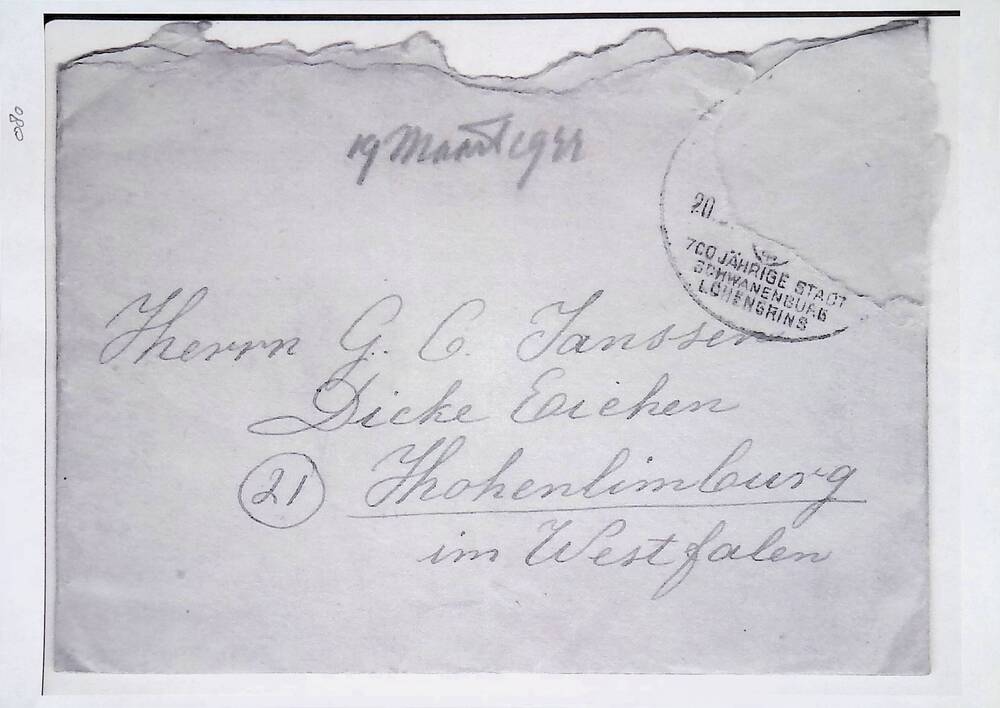 080
19 Maart 1944
20
700 JÄHRIGE STADT
SCHWANENBURG
LOHENGRINS
Herrn G. C. Janssen
Dicke Eichen
21 Hohenlimburg
im Westfalen